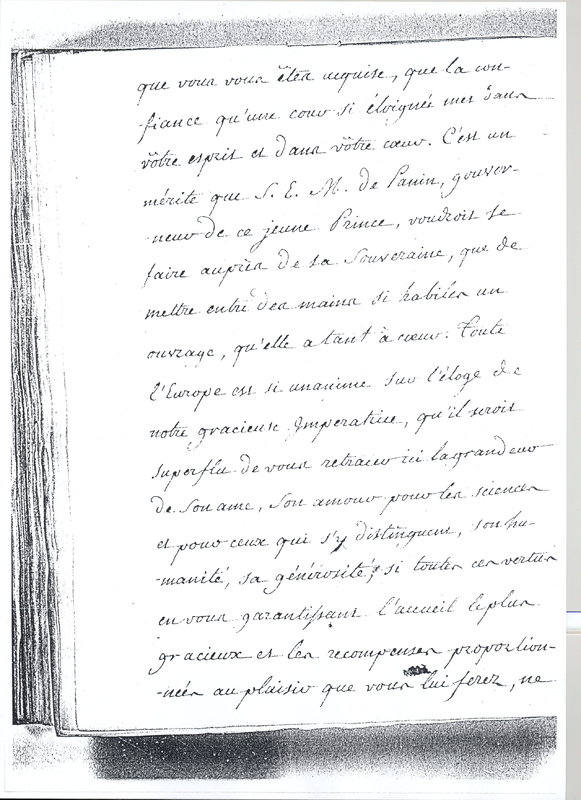 que vous vous êtes acquise, que la con-
fiance qu'une cour si éloignée met dans
vôtre esprit et dans vôtre cœur. C'est un
mérite que S. E. M. de Panin, gouver-
-neur de ce jeune Prince, voudroit se
faire auprès de sa Souveraine, que de
mettre entre des mains si habiles un
ouvrage, qu'elle a tant à cœur. Toute
l'Europe est si unanime sur l'éloge de
notre gracieuse Imperatrice, qu'il seroit
superflu de vous retracer ici la grandeur
de son ame, son amour pour les sciences
et pour ceux qui s'y distinguent, son hu-
-manité, sa générosité; si toutes ces vertus
en vous garantissant l'accueil le plus
gracieux et les recompenses proportion-
-nées au plaisir que vous lui ferez, ne